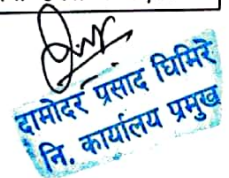 दामोदर प्रसाद घिमिरे
नि. कार्यालय प्रमुख